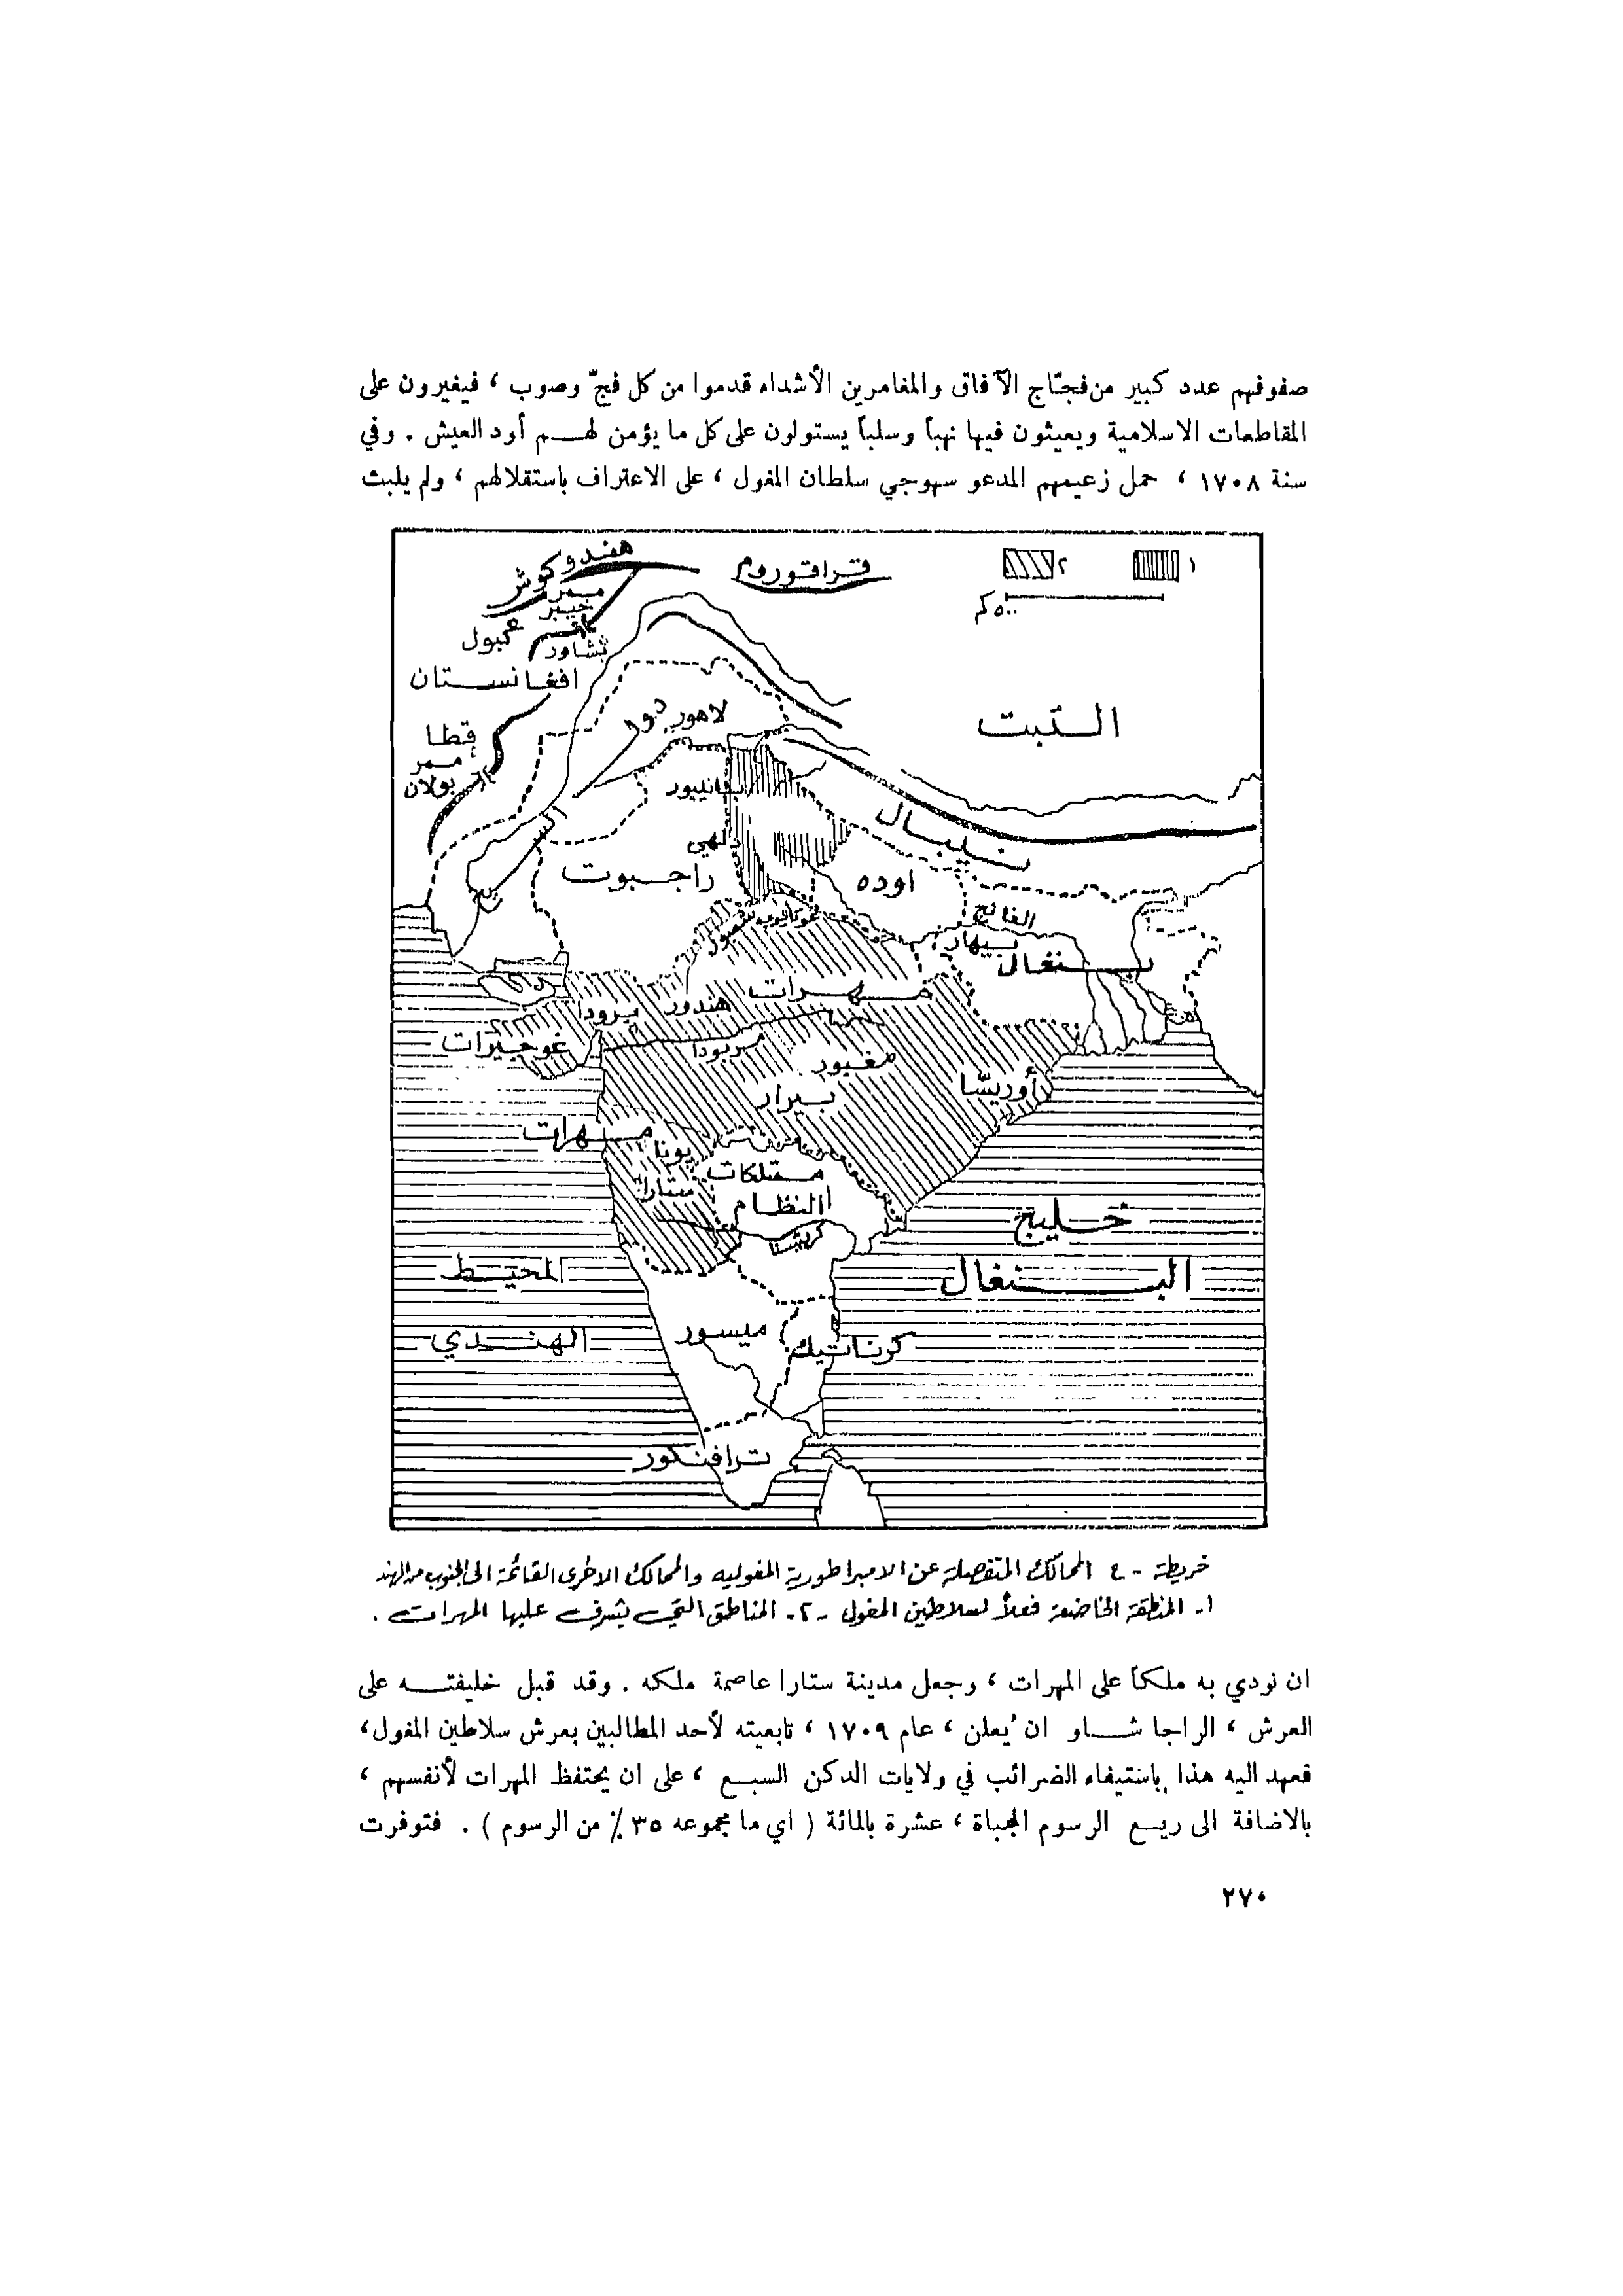 صفوفهم عدد كبير من فجتّاج الآفاق والمغامرين الأشداء قدموا من كل فجّ وصوب ، فيغيرون على
المقاطعات الاسلامية ويعيثون فيها نهباً وسلباً يستولون على كل ما يؤمن لهم أود العيش . وفي
سنة ١٧٠٨ ، حمل زعيمهم المدعو سهوجي سلطان المغول ، على الاعتراف باستقلالهم ، ولم يلبث
هندوكوش
قراقوروم
٢
١
ممر
خيبر
٥٠٠ كم
كبول
بشاور
افغانستان
لاهور
التبت
قطا
ممر
بولان
بانيبور
نيبال
دلهي
راجبوت
اوده
الغانج
بيهار
بنغال
مهرات
هندور
برودا
غوجيرات
نربودا
نغبور
أوريسّا
بيرار
مهرات
بونا
ستارا
ممتلكات
النظام
كريشنا
خليج
البنغال
المحيط
الهندي
ميسور
كرناتيك
ترافنكور
خريطة - ٤ الممالك المنفصلة عن الامبراطورية المغوليه والممالك الاخرى القائمة الى الجنوب من الهند
١- المنطقة الخاضعة فعلاً لسلاطين المغول -٢- المناطق التي يشرف عليها المهرات .
ان نودي به ملكاً على المهرات ، وجعل مدينة ستارا عاصمة ملكه . وقد قبل خليفته على
العرش ، الراجا شاو ان يُعلن ، عام ١٧٠٩ ، تابعيته لأحد المطالبين بعرش سلاطين المغول ،
فعهد اليه هذا باستيفاء الضرائب في ولايات الدكن السبع ، على ان يحتفظ المهرات لأنفسهم ،
بالاضافة الى ريع الرسوم المجباة ، عشرة بالمائة ( اي ما مجموعه ٣٥ ٪ من الرسوم ) . فتوفرت
٢٧٠